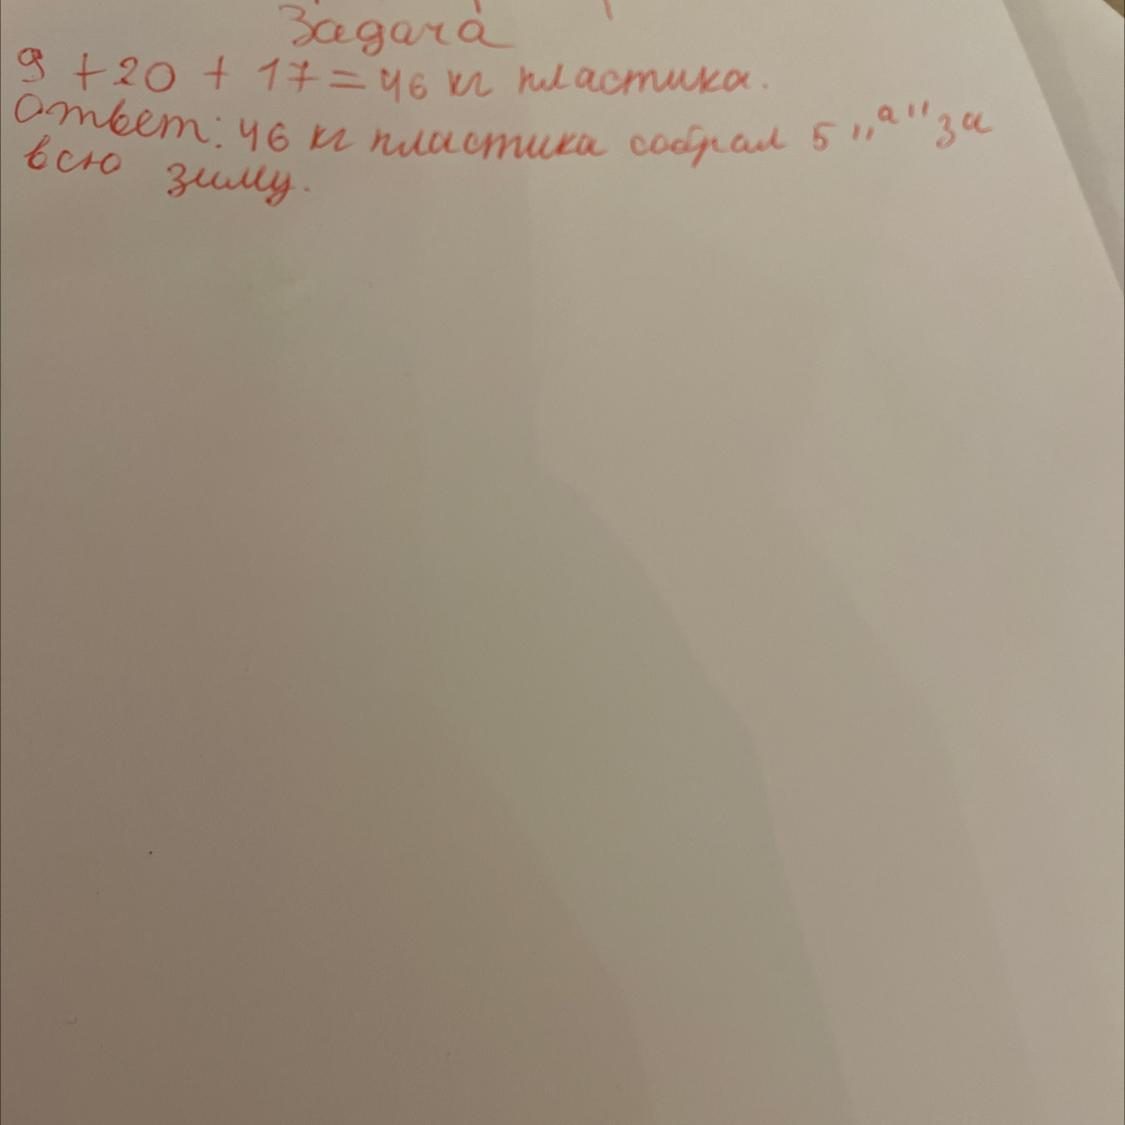 Задача
9 + 20 + 17 = 46 кг пластика.
Ответ: 46 кг пластика собрал 5 „а" за
всю зиму.